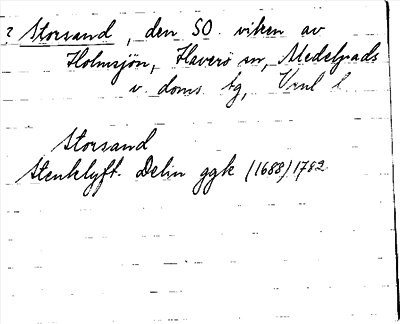 ? Storsand, den SO. viken av
Holmsjön, Haverö sn, Medelpads
v. doms. tg, Vrnl l
Storsand
Stenklyft. Delin ggk (1688) 1782